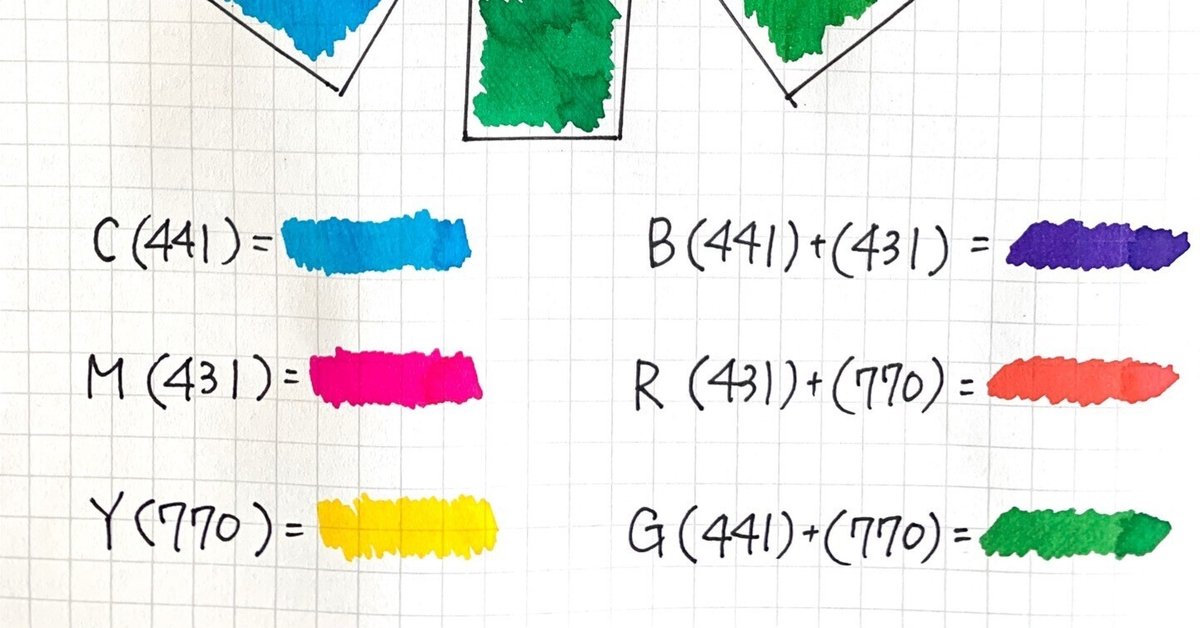 C(441)=
M(431)=
Y(770)=
B(441)+(431)=
R(431)+(770)=
G(441)+(770)=